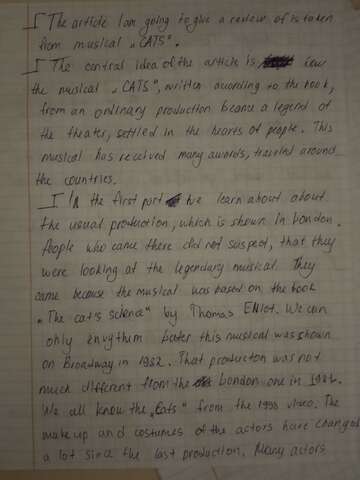 The article I am going to give a review of is taken
from musical „CATS".
The central idea of the article is how
the musical „CATS", written according to the book,
from an ordinary production became a legend of
the theater, settled in the hearts of people. This
musical has received many awards, traveled around
the countries.
In the first part we learn about about
the usual production, which is shown in London.
People who came there did not suspect, that they
were looking at the legendary musical. They
came because the musical was based on the book
„The cat's science" by Thomas Eliot. We can
only
later this musical was shown
on Broadway in 1982. That production was not
much different from the London one in 1981.
We all know the „Cats" from the 1998 video. The
make up and costumes of the actors have changed
a lot since the last production. Many actors